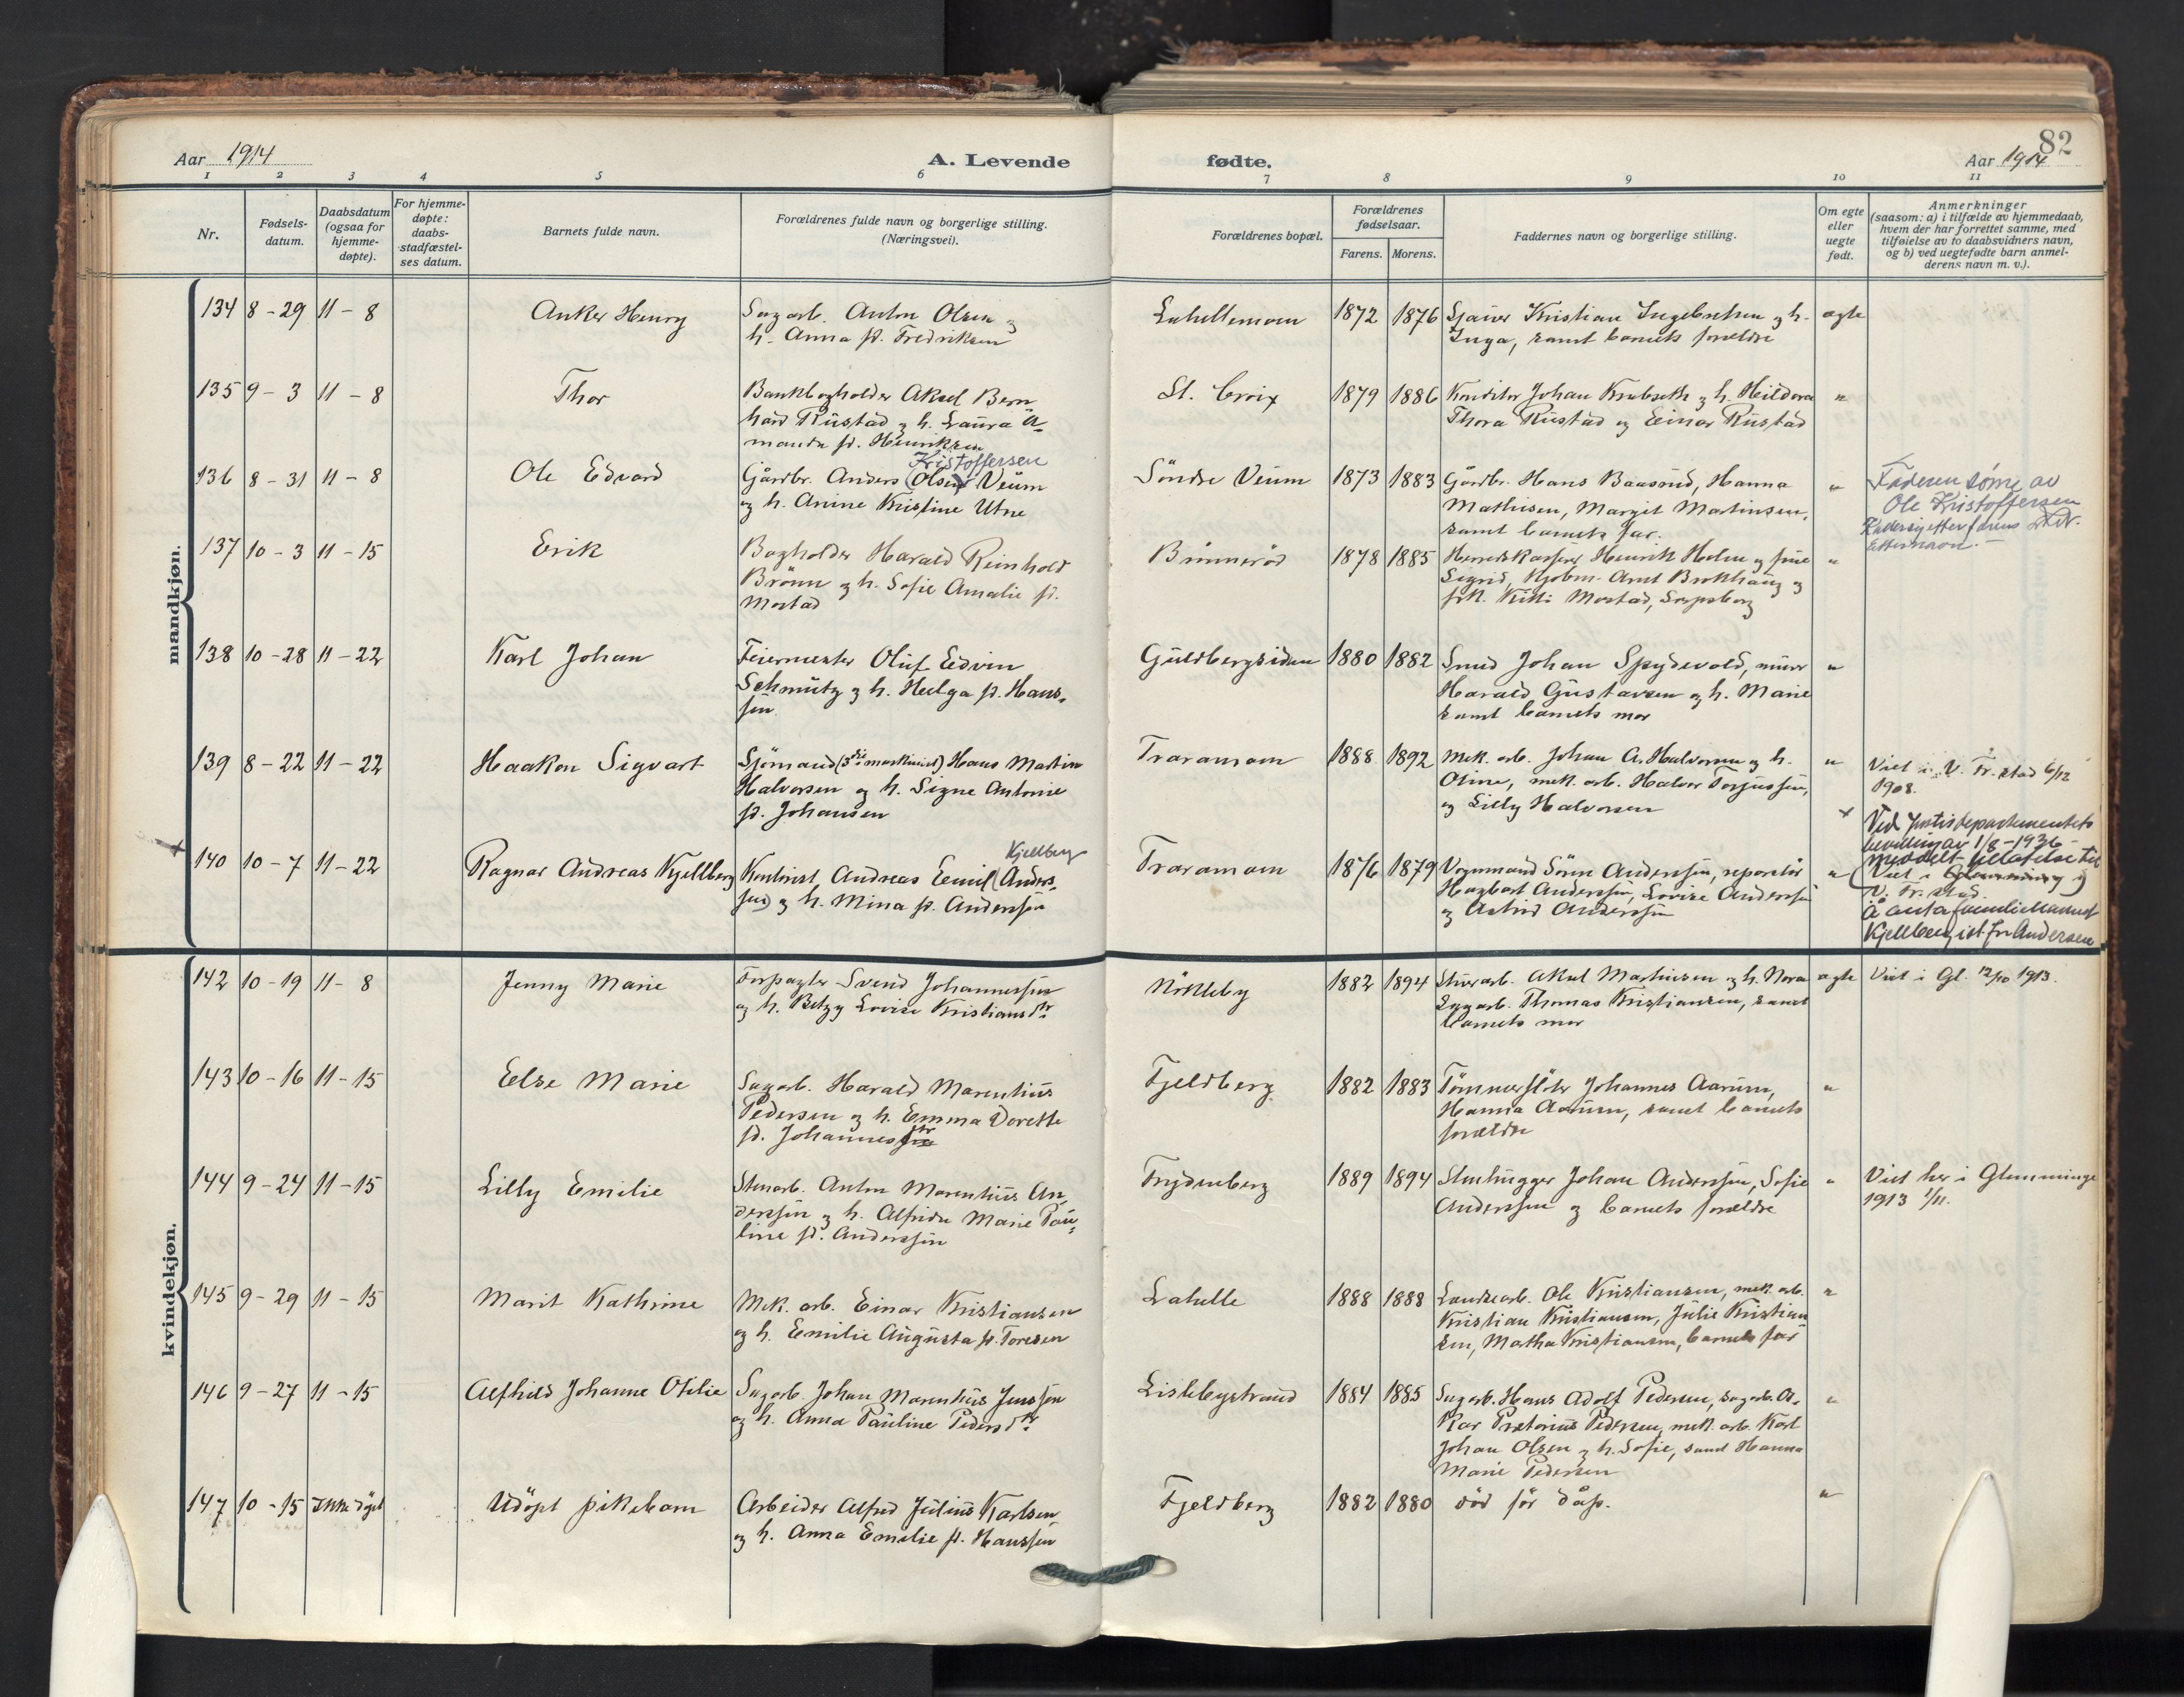 82
Aar 1914
A. Levende
fødte.
Aar 1914
1 2 3 4 5 6 7 8 9 10 11
Nr.
Fødsels-
datum.
Daabsdatum
(ogsaa for
hjemme-
døpte).
For hjemme-
døpte:
daabs-
stadfæstel-
ses datum.
Barnets fulde navn.
Forældrenes fulde navn og borgerlige stilling.
(Næringsvei).
Forældrenes bopæl.
Forældrenes
fødselsaar.
Farens. Morens.
Faddernes navn og borgerlige stilling.
Om egte
eller
uegte
født.
Anmerkninger
(saasom: a) i tilfælde av hjemmedaab,
hvem der har forrettet samme, med
tilføielse av to daabsvidners navn,
og b) ved uegtefødte barn anmel-
derens navn m. v.).
mandkjøn.
134 8-29 11-8 Anker Henry
Sagarb. Anton Olsen og
h. Anna f. Fredriksen
Lahellemoen 1872 1876
Sjauer Kristian Ingebretsen og h.
Inga, samt barnets forældre
egte
135 9-3 11-8 Thor
Bankbogholder Aksel Bern
hard Rustad og h. Laura A-
manda f. Henriksen
St. Croix 1879 1886
Konditor Johan Krabseth og h. Hildora
Thora Rustad og Einar Rustad
"
136 8-31 11-8 Ole Edvard
Kristoffersen
Gårdbr. Anders (Olsen) Veum
og h. Anine Kristine Utne
Søndre Veum 1873 1883
Gårdbr. Hans Baasrud, Hanna
Mathisen, Margit Martinsen,
samt barnets far.
"
Faderen sønn av
Ole Kristoffersen
etternavn.
137 10-3 11-15 Erik
Bogholder Harald Reinhold
Brönn og h. Sofie Amalie f.
Mostad
Brönneröd 1878 1885
Herredskasserer Henrik Holm og frue
Sigrid, Kjøbm. Arnt Brokhaug og
frk. Kitti Mostad, Sarpsborg
"
138 10-28 11-22 Karl Johan
Feiermester Oluf Edvin
Schmutz og h. Helga f. Hans-
sen
Guldbergsiden 1880 1882
Smed Johan Spydevold, murer
Harald Gustavsen og h. Marie
samt barnets mor
"
139 8-22 11-22 Haakon Sigvart
Sjømand (3die maskinist) Hans Martin
Halvorsen og h. Signe Antonie
f. Johansen
Traramoen 1888 1892
Mek. arb. Johan A. Halvorsen og h.
Oline, mek. arb. Halvor Torjussen,
og Lilly Halvorsen
"
Viet i V. Fr.stad 6/12
1908.
140 10-7 11-22 Ragnar Andreas Kjellberg
Kjellberg
Kontorist Andreas Emil (Anders-
sen) og h. Mina f. Anderssen
Traramoen 1876 1879
Vognmand Sören Anderssen, reparatör
Hagbart Anderssen, Lovise Anderssen
og Astrid Anderssen
"
Ved Justisdepartementets
bevilling av 1/8-1936
meddelt tillatelse til
Viet i Glemminge
V. Fr.stad
å anta familienavnet
Kjellberg ist. for Andersen
kvindekjøn.
142 10-19 11-8 Jenny Marie
Forpagter Svend Johannessen
og h. Betzy Lovise Kristiansdtr
Nökleby 1882 1894
Stuerarb. Aksel Martinsen og h. Nora
Sagarb. Thomas Kristiansen, samt
barnets mor
egte
Viet i Gl. 12/10 1913.
143 10-16 11-15 Else Marie
Sagarb. Harald Marentius
Pedersen og h. Emma Dorette
f. Johannesdtr
Fjeldberg 1882 1883
Tømmerfløter Johannes Aarum,
Hanna Aarum, samt barnets
forældre
"
144 9-24 11-15 Lilly Emilie
Stenarb. Anton Marentius An
derssen og h. Alfride Marie Pau-
line f. Anderssen
Frydenberg 1889 1894
Stenhugger Johan Anderssen, Sofie
Anderssen og barnets forældre
"
Viet her i Glemminge
1913 1/11.
145 9-29 11-15 Marit Kathrine
Mek. arb. Einar Kristiansen
og h. Emilie Augusta f. Toresen
Lahelle 1888 1888
Landsearb. Ole Kristiansen, mek. arb.
Kristian Kristiansen, Julie Kristian
sen, Martha Kristiansen, barnets far
"
146 9-27 11-15 Alfhild Johanne Otilie
Sagarb. Johan Marentius Jenssen
og h. Anna Pauline Pedersdtr
Lislebystrand 1884 1885
Sagarb. Hans Adolf Pedersen, sagarb. Os-
kar Prætorius Pedersen, mek. arb. Karl
Johan Olsen og h. Sofie, samt Hanna
Marie Pedersen
"
147 10-15 Ikke døpt Udöpt pikebarn
Arbeider Alfred Julius Karlsen
og h. Anna Emilie f. Hanssen
Fjeldberg 1882 1880
död för dåp.
"